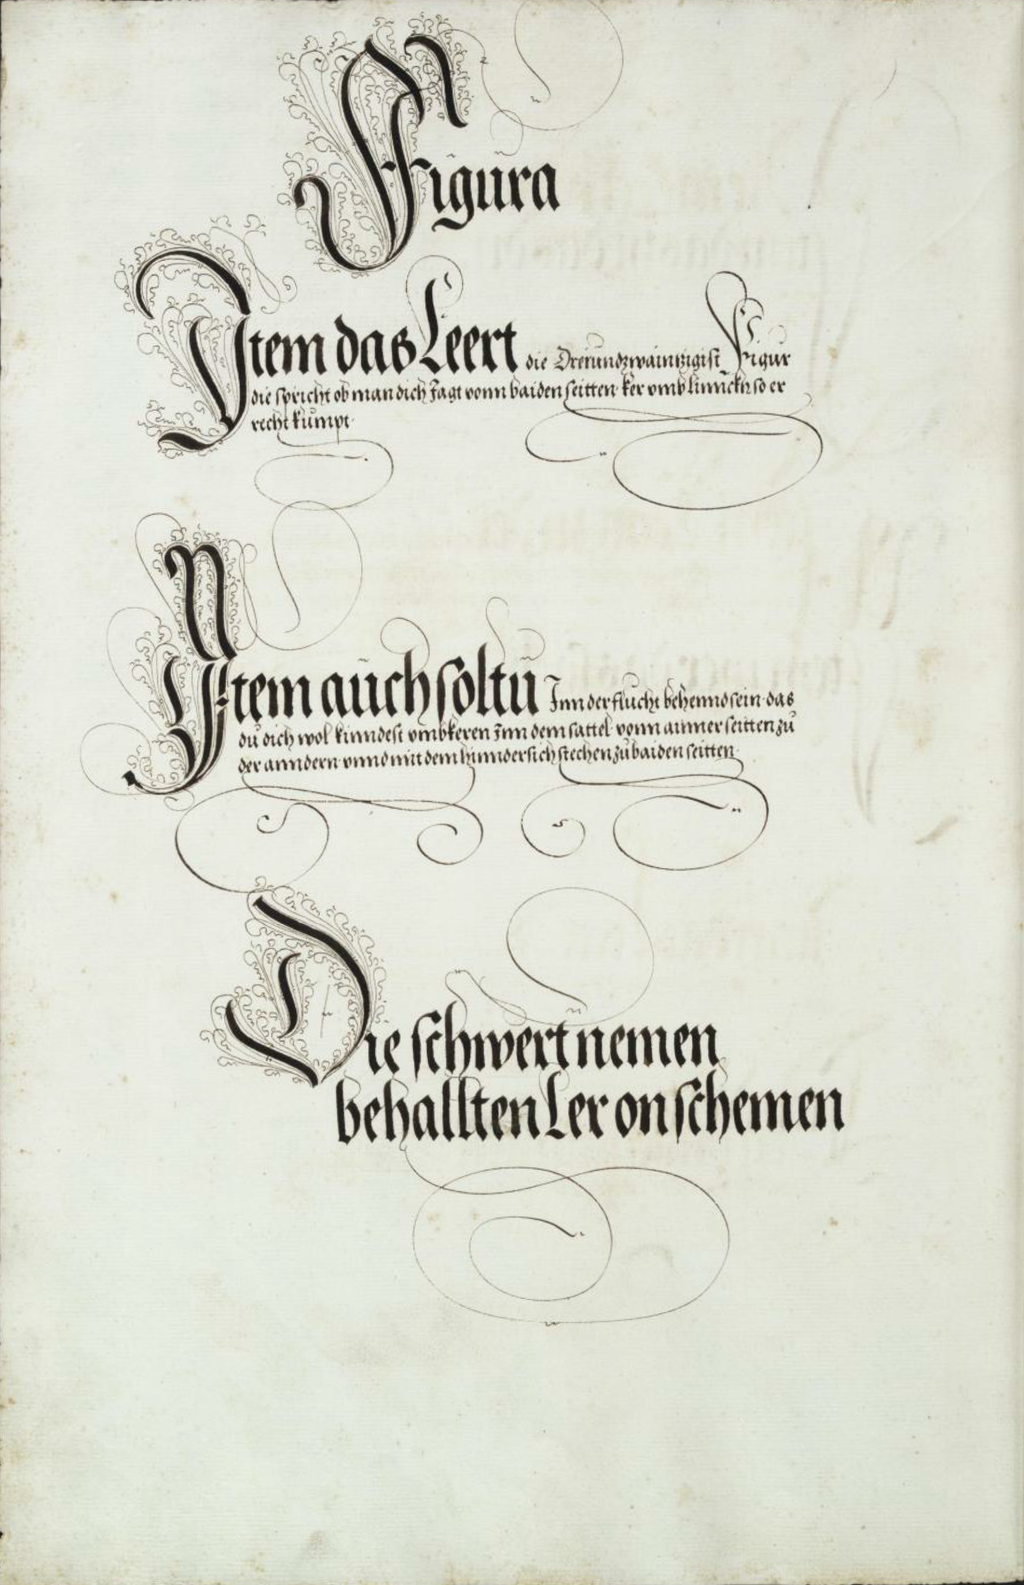 Figura
Item das Leert die Dreiundzwaintzigist Figur
die spricht ob man dich Jagt vonn baiden seitten ker vmb linnckh so er
recht kumpt.
Item auch soltu Inn der flucht behennd sein das
du dich wol kinndest vmbkeren Inn dem sattel vonn ainner seitten zu
der anndern vnnd mit dem hinndersich stechen zu baiden seitten
Die schwert nemen
behallten Ler on schemen